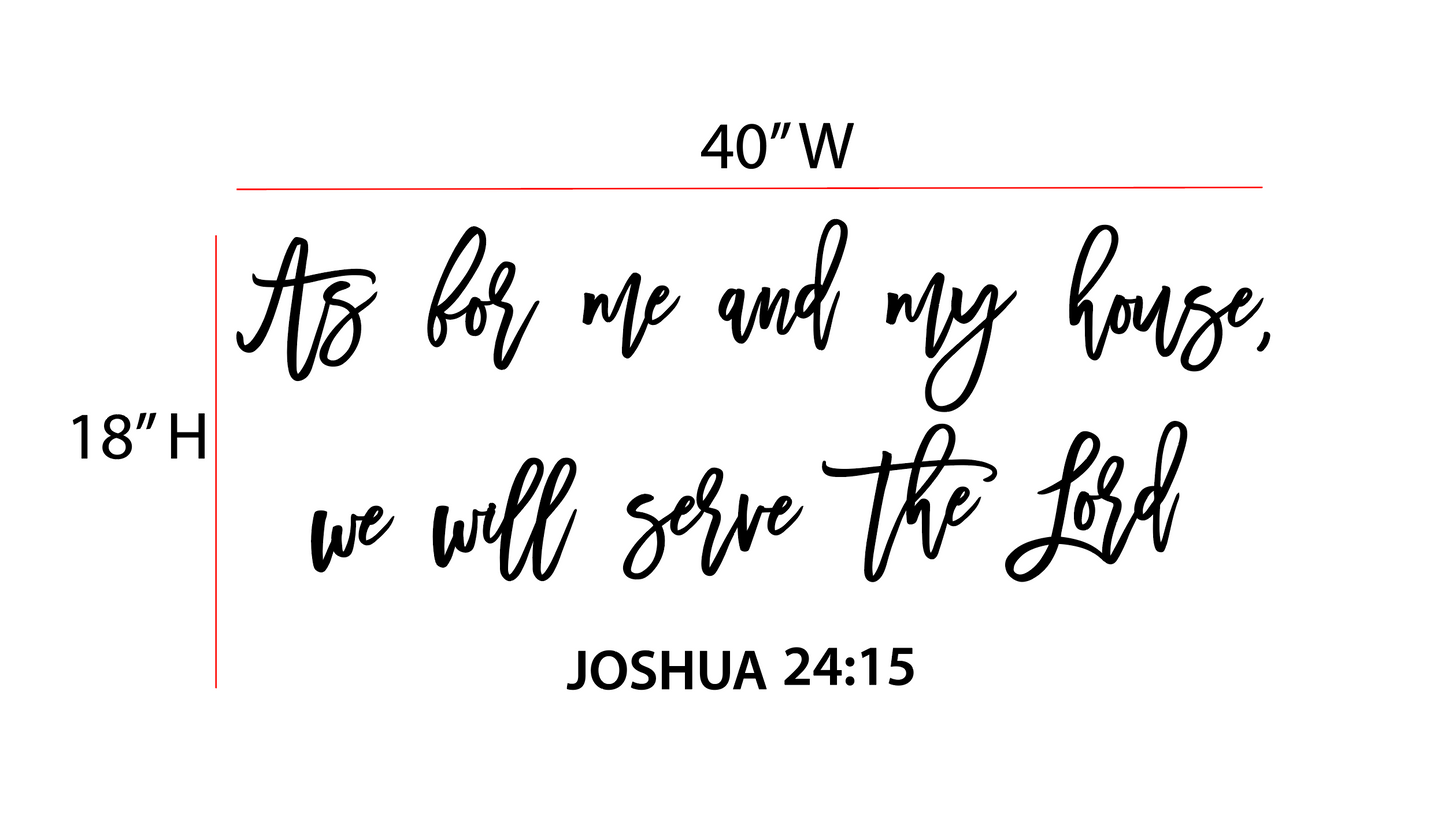 40” W
As for me and my house,
18” H
we will serve the Lord
JOSHUA 24:15